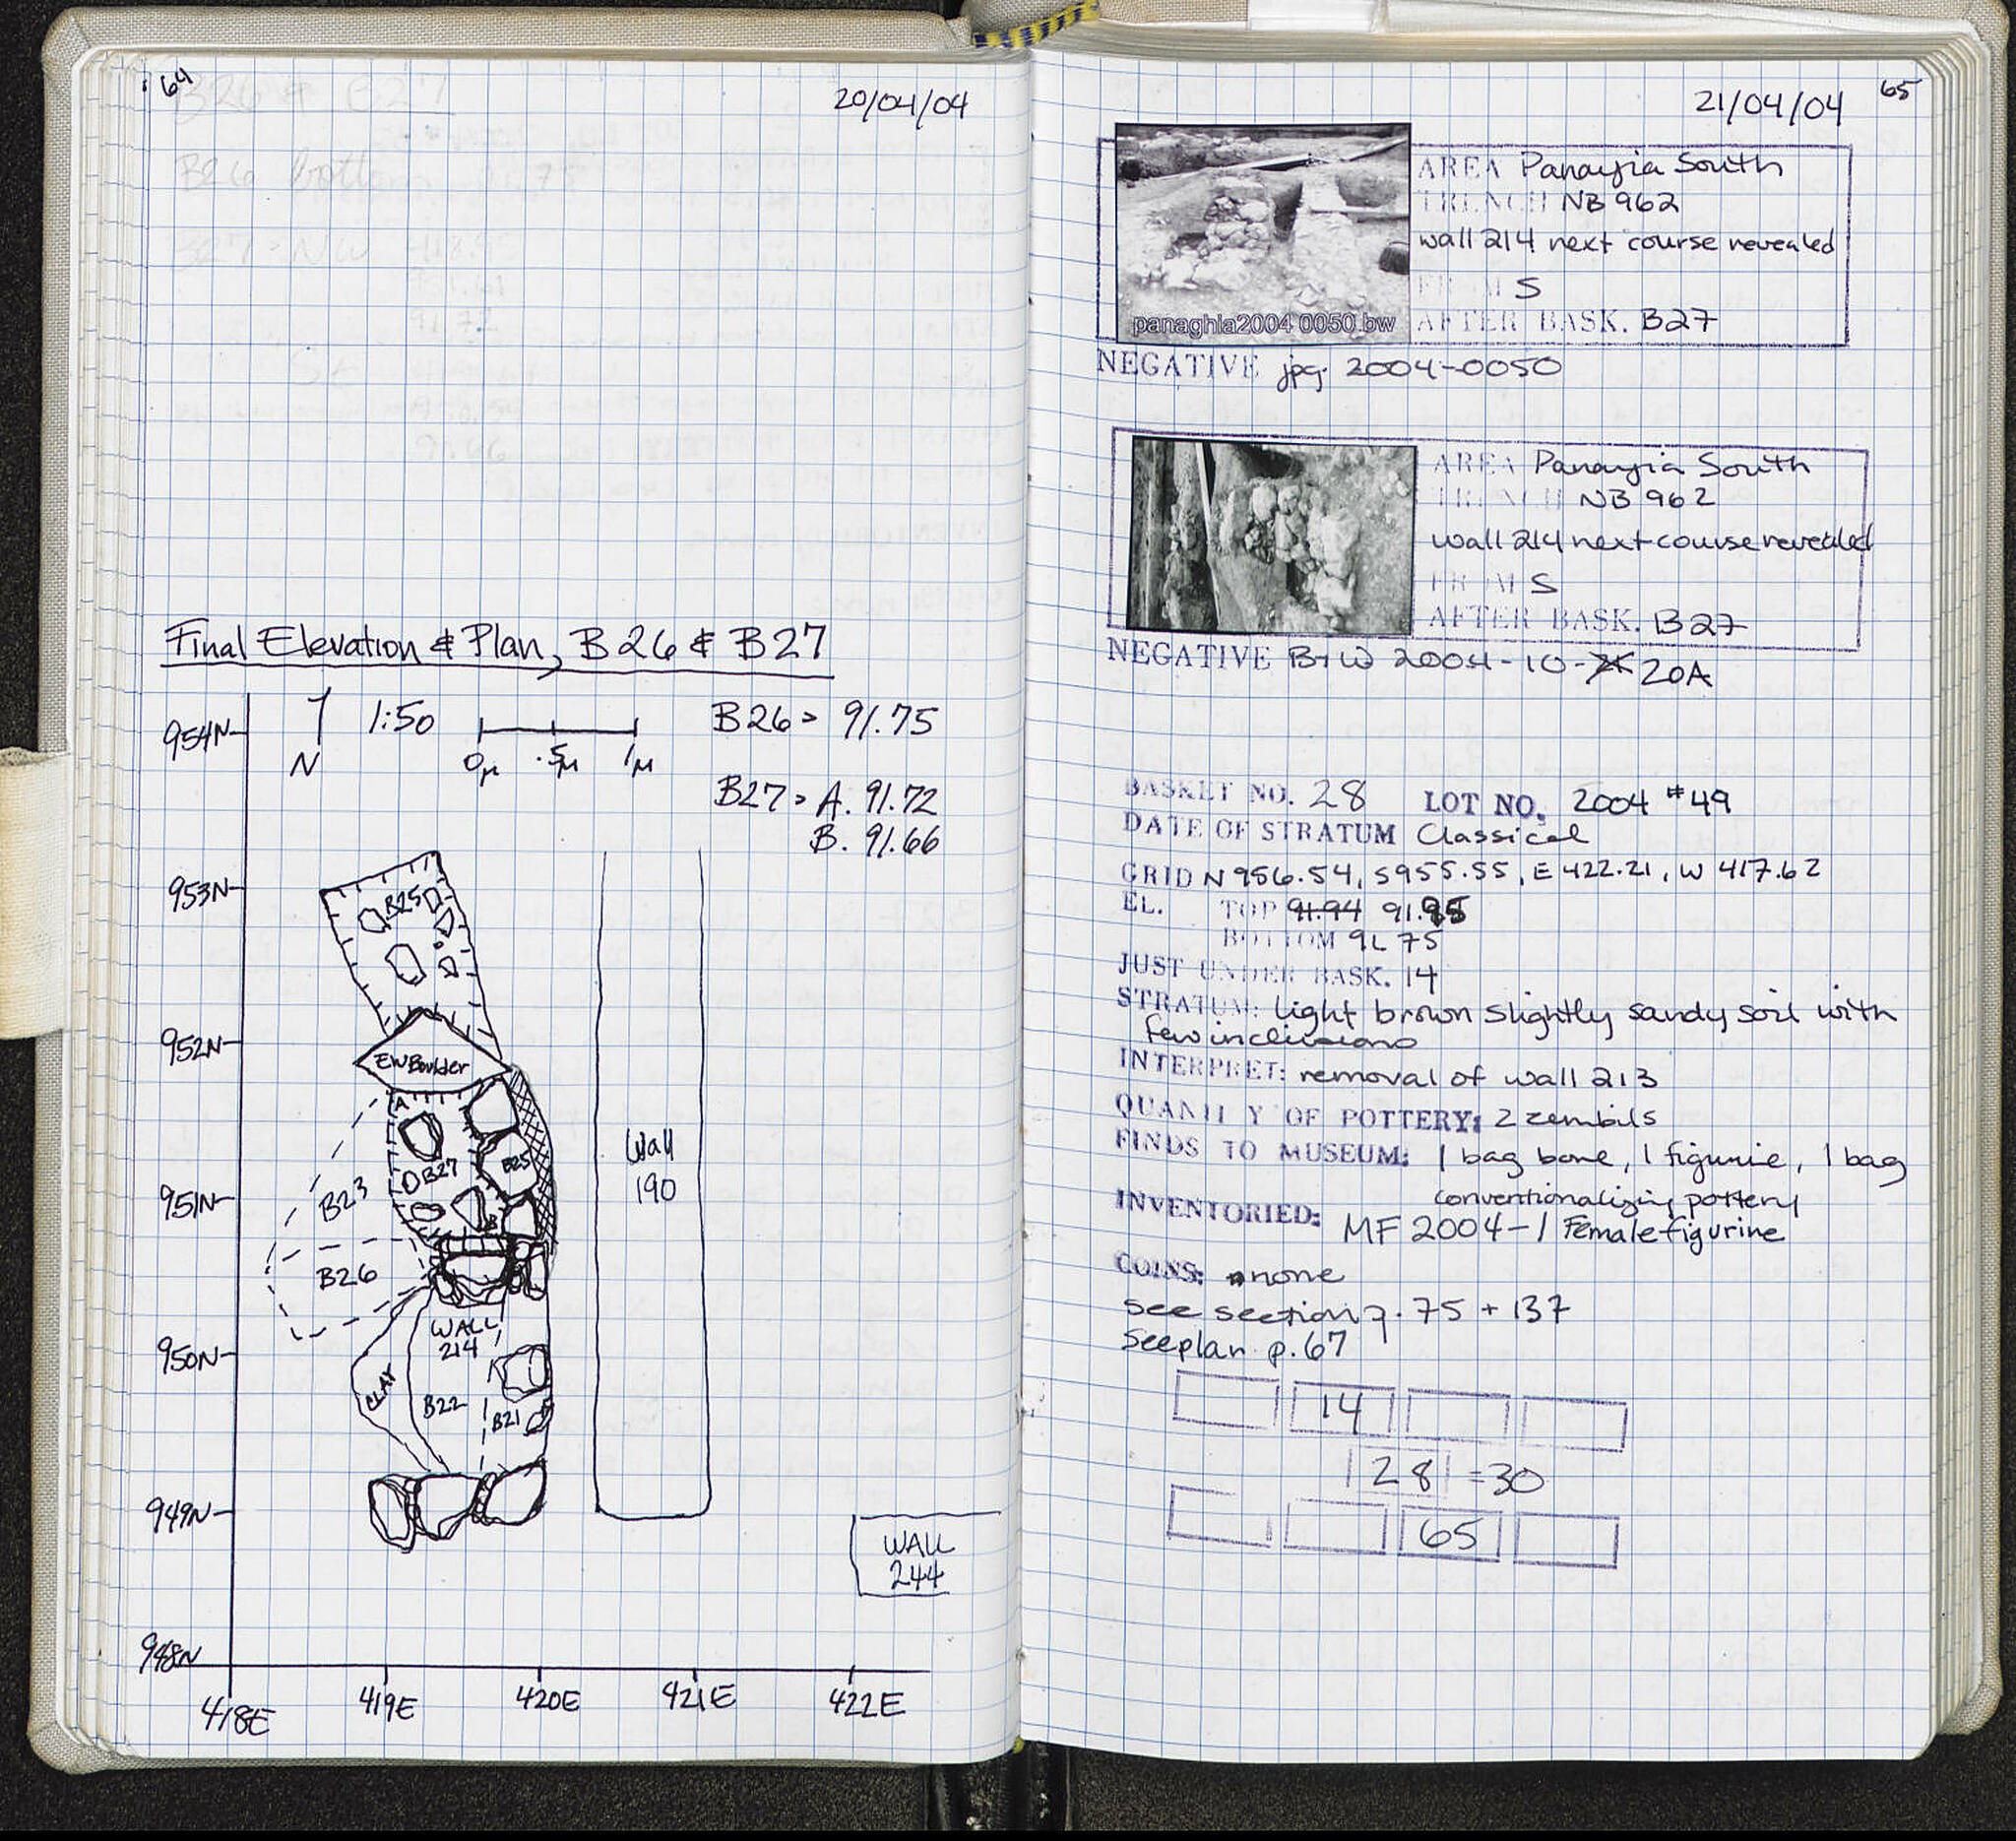 64
20/04/04
Final Elevation & Plan, B26 & B27
954N
N
1:50
0M .5M 1M
B26 > 91.75
B27 > A. 91.72
B. 91.66
953N
B25
952N
EW Boulder
A
B27
B25
B23
951N
B
Wall
190
B26
WALL
214
950N
CLAY
B22
B21
949N
WALL
244
948N
418E 419E 420E 421E 422E
65
21/04/04
AREA Panayia South
TRENCH NB 962
wall 214 next course revealed
FROM S
panaghia2004 0050.bw
AFTER BASK. B27
NEGATIVE jpg. 2004-0050
AREA Panayia South
TRENCH NB 962
wall 214 next course revealed
FROM S
AFTER BASK. B27
NEGATIVE B+W 2004-10- 20A
BASKET NO. 28 LOT NO. 2004 #49
DATE OF STRATUM Classical
GRID N 956.54, S955.55, E 422.21, W 417.62
EL. TOP 91.94 91.95
BOTTOM 91.75
JUST UNDER BASK. 14
STRATUM: light brown slightly sandy soil with
few inclusions
INTERPRET: removal of wall 213
QUANTITY OF POTTERY: 2 zembils
FINDS TO MUSEUM: 1 bag bone, 1 figurine, 1 bag
conventionalizing pottery
INVENTORIED: MF 2004-1 Female figurine
COINS: none
see section p. 75 + 137
See plan p. 67
14
28 =30
65